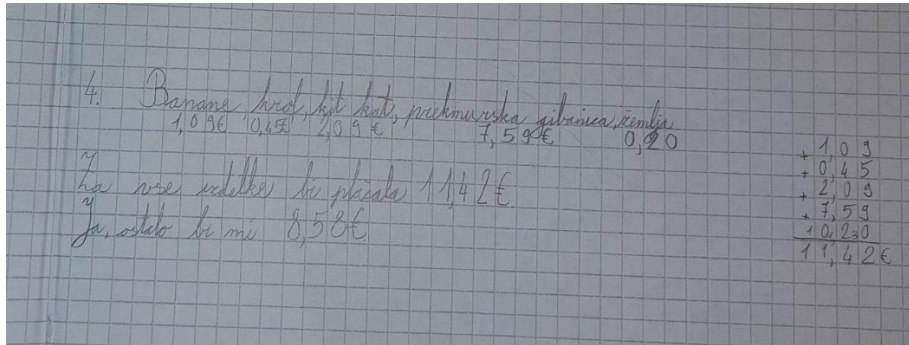 4. Banane, krof, kit kat, prekmurska gibanica, žemlja
1,09€ 0,45€ 2,09€ 7,59€ 0,20
Za vse izdelke bi plačala 11,42€.
Ja, ostalo bi mi 8,58€.
1,09
+ 0,45
+ 2,09
+ 7,59
0,20
11,42€